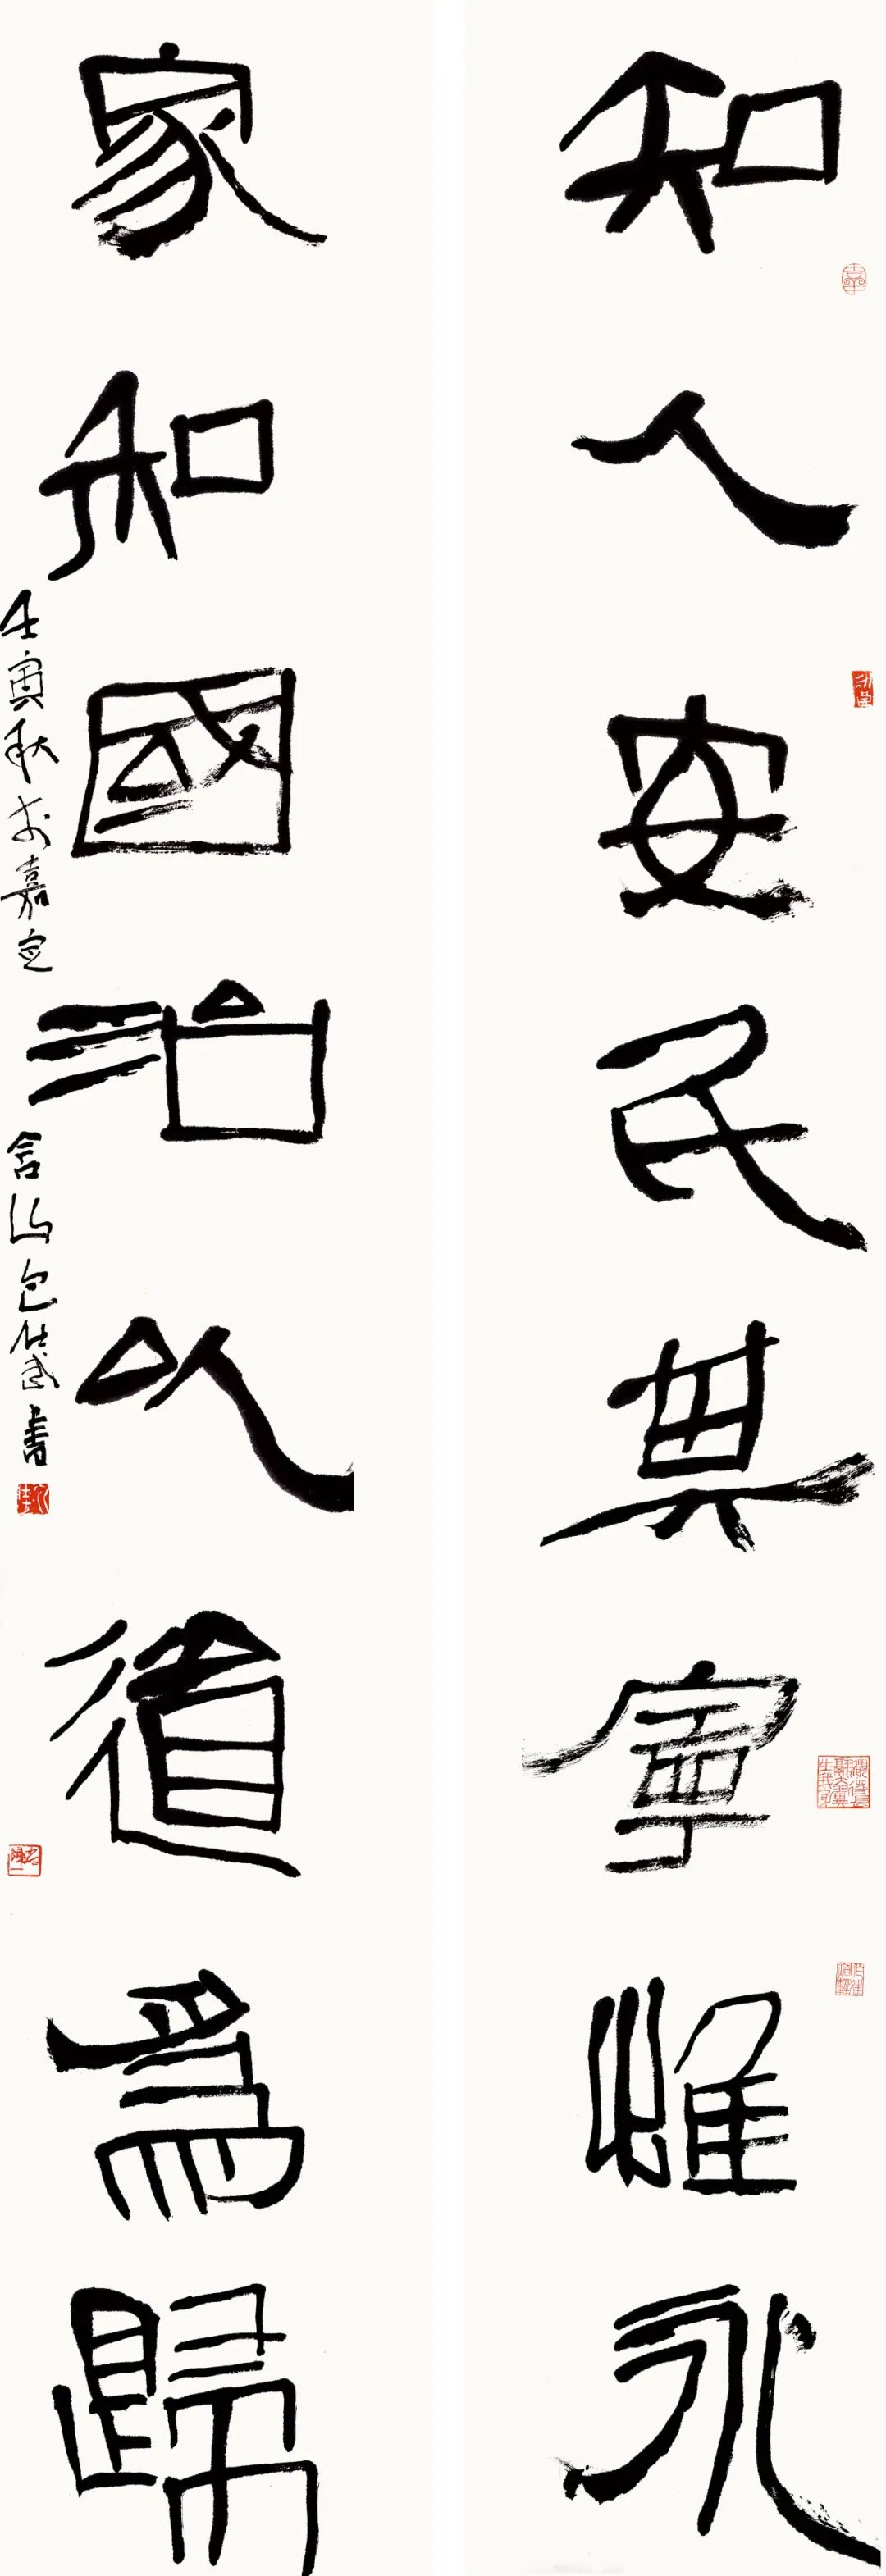 知人安民其寧惟永
家和國治以道為歸
壬寅秋於嘉定
含山包仕武書